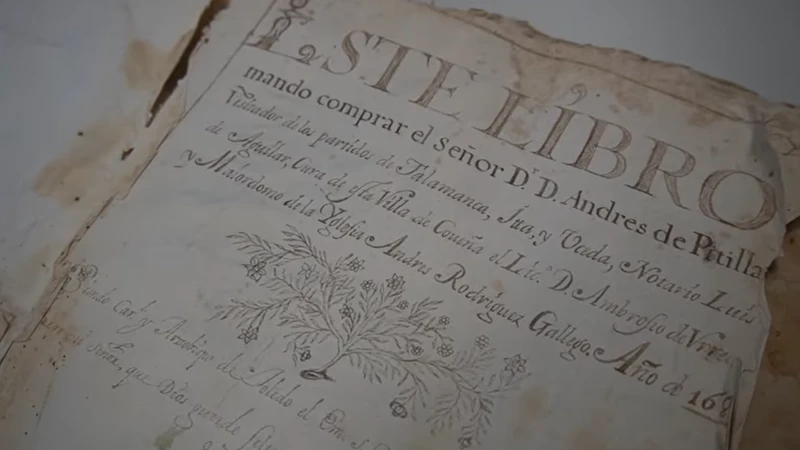 ESTE LIBRO
mando comprar el señor D.r D. Andres de Pitilla
Visitador de los partidos de Talamanca, Ita, y Uzeda, Notario Luis
de Aguilar, Cura de esta Villa de Coueña el Lic.do D. Ambrosio de Vrru
y Maiordomo de la Yglesia Andres Rodriguez Gallego. Año de 168
Siendo Car.l y Arzobispo de Toledo el Em.o S
Señor, que Dios guarde